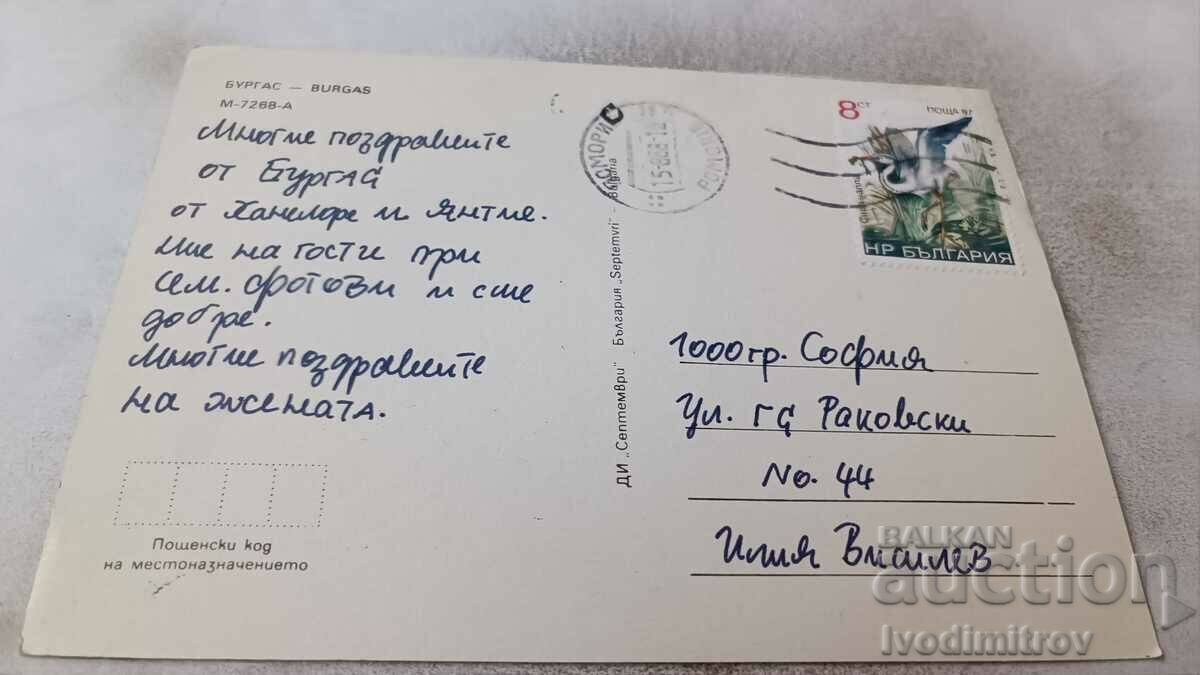 БУРГАС — BURGAS
М-7268-А
Многие поздравите
от Бургас
от Ханелоре и Янтие.
Ние на гости при
сем. Фотови и сме
добре.
Многие поздравите
на жената.
Пощенски код
на местоназначението
ДИ „Септември" България „Septemvri" - Bulgaria
ПОМОРИЕ
15-8
POMORIE
8 СТ
ПОЩА 87
НР БЪЛГАРИЯ
1000 гр. София
Ул. ГС Раковски
No. 44
Илия
BALKAN
auction
Ivodimitrov